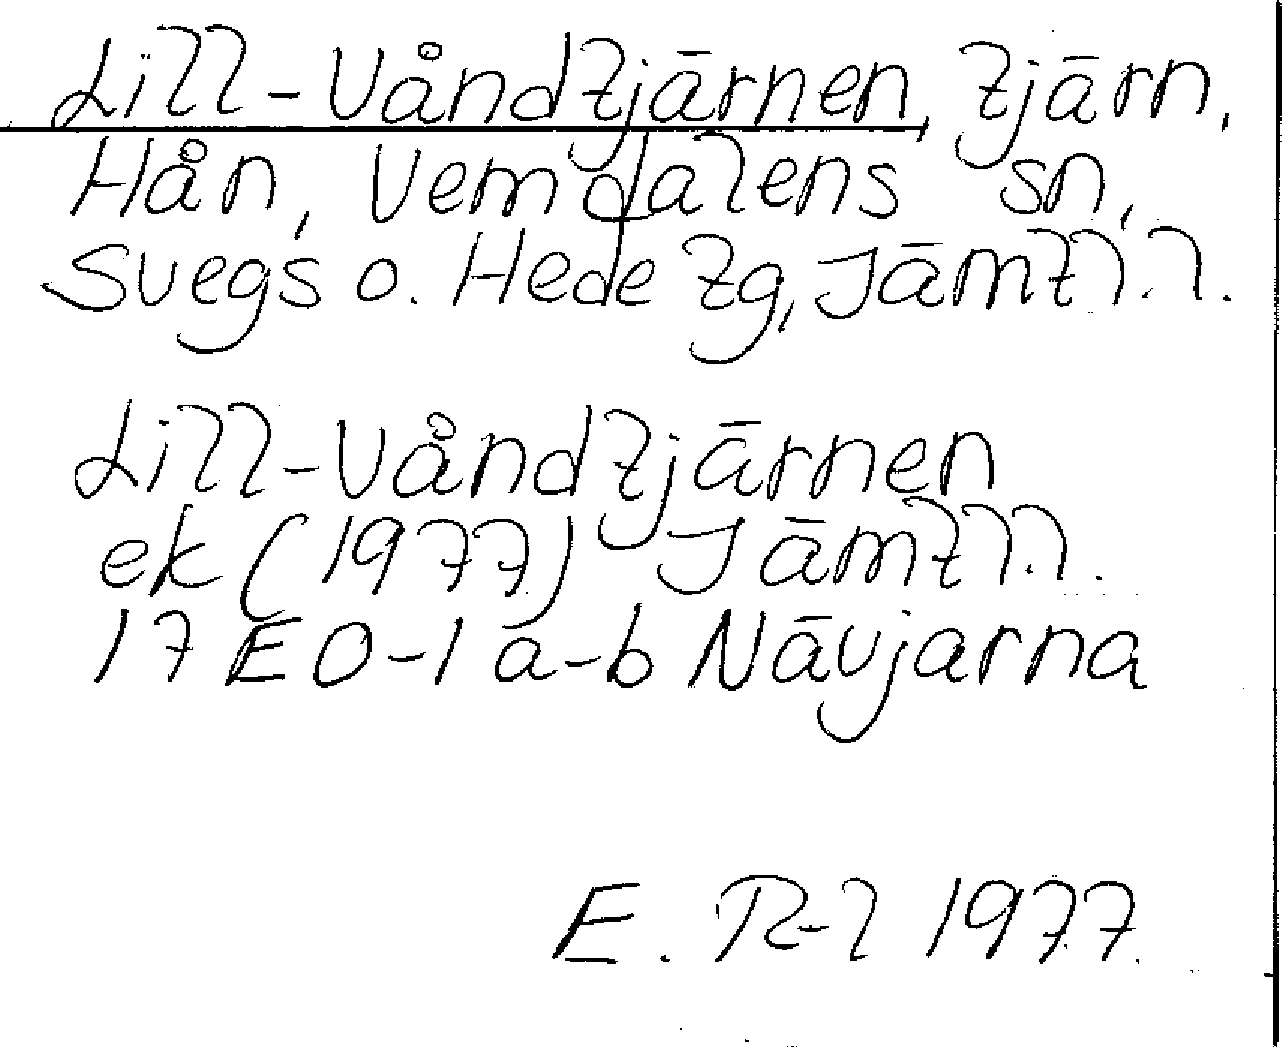 Lill-Våndtjärnen, tjärn,
Hån, Vemdalens sn,
Svegs o. Hede tg, Jämtl.l.
Lill-Våndtjärnen
ek (1977) Jämtl.l.
17 E 0-1 a-b Nävjarna
E. R-l 1977